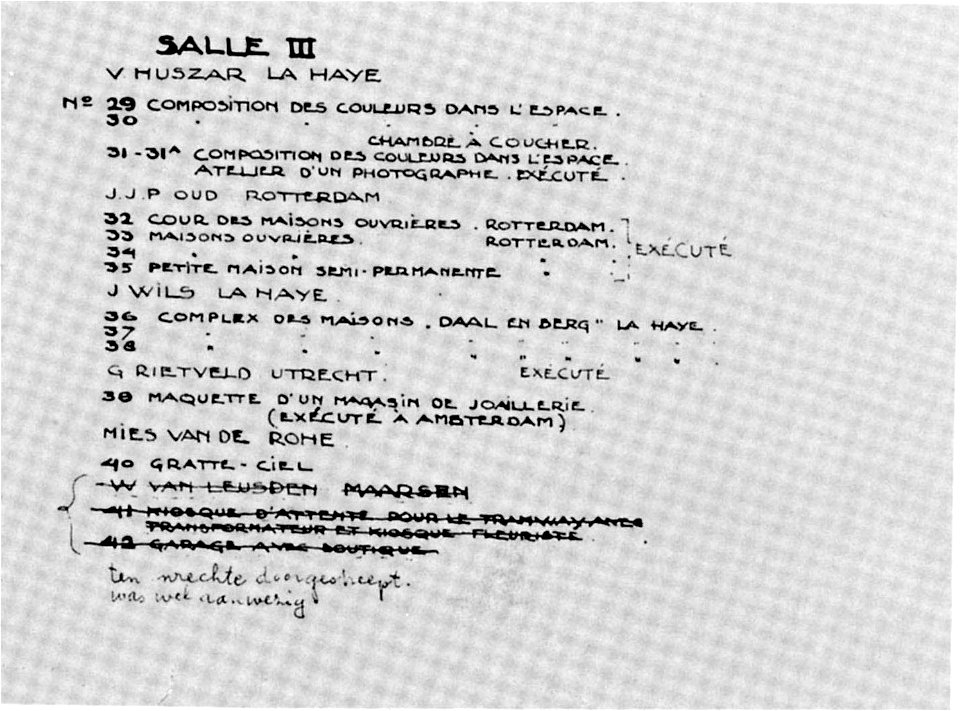 SALLE III
V HUSZAR LA HAYE
Nº 29 COMPOSITION DES COULEURS DANS L'ESPACE.
30 " " " " "
CHAMBRE À COUCHER.
31-31A COMPOSITION DES COULEURS DANS L'ESPACE.
ATELIER D'UN PHOTOGRAPHE. EXÉCUTÉ.
J.J.P OUD ROTTERDAM
32 COUR DES MAISONS OUVRIÈRES. ROTTERDAM.
33 MAISONS OUVRIÈRES. ROTTERDAM. EXÉCUTÉ
34 " " " "
35 PETITE MAISON SEMI-PERMANENTE "
J WILS LA HAYE.
36 COMPLEX DES MAISONS „DAAL EN BERG" LA HAYE.
37 " " " " " " " "
38 " " " " " " " "
G RIETVELD UTRECHT. EXÉCUTÉ
38 MAQUETTE D'UN MAGASIN DE JOAILLERIE.
(EXÉCUTÉ À AMSTERDAM)
MIES VAN DE ROHE.
40 GRATTE-CIEL
W VAN LEUSDEN MAARSEN
41 KIOSQUE D'ATTENTE POUR LE TRAMWAY AVEC
TRANSFORMATEUR ET KIOSQUE FLEURISTE.
42 GARAGE AVEC BOUTIQUE
ten nrechte doorgestreept.
was wel aanwezig